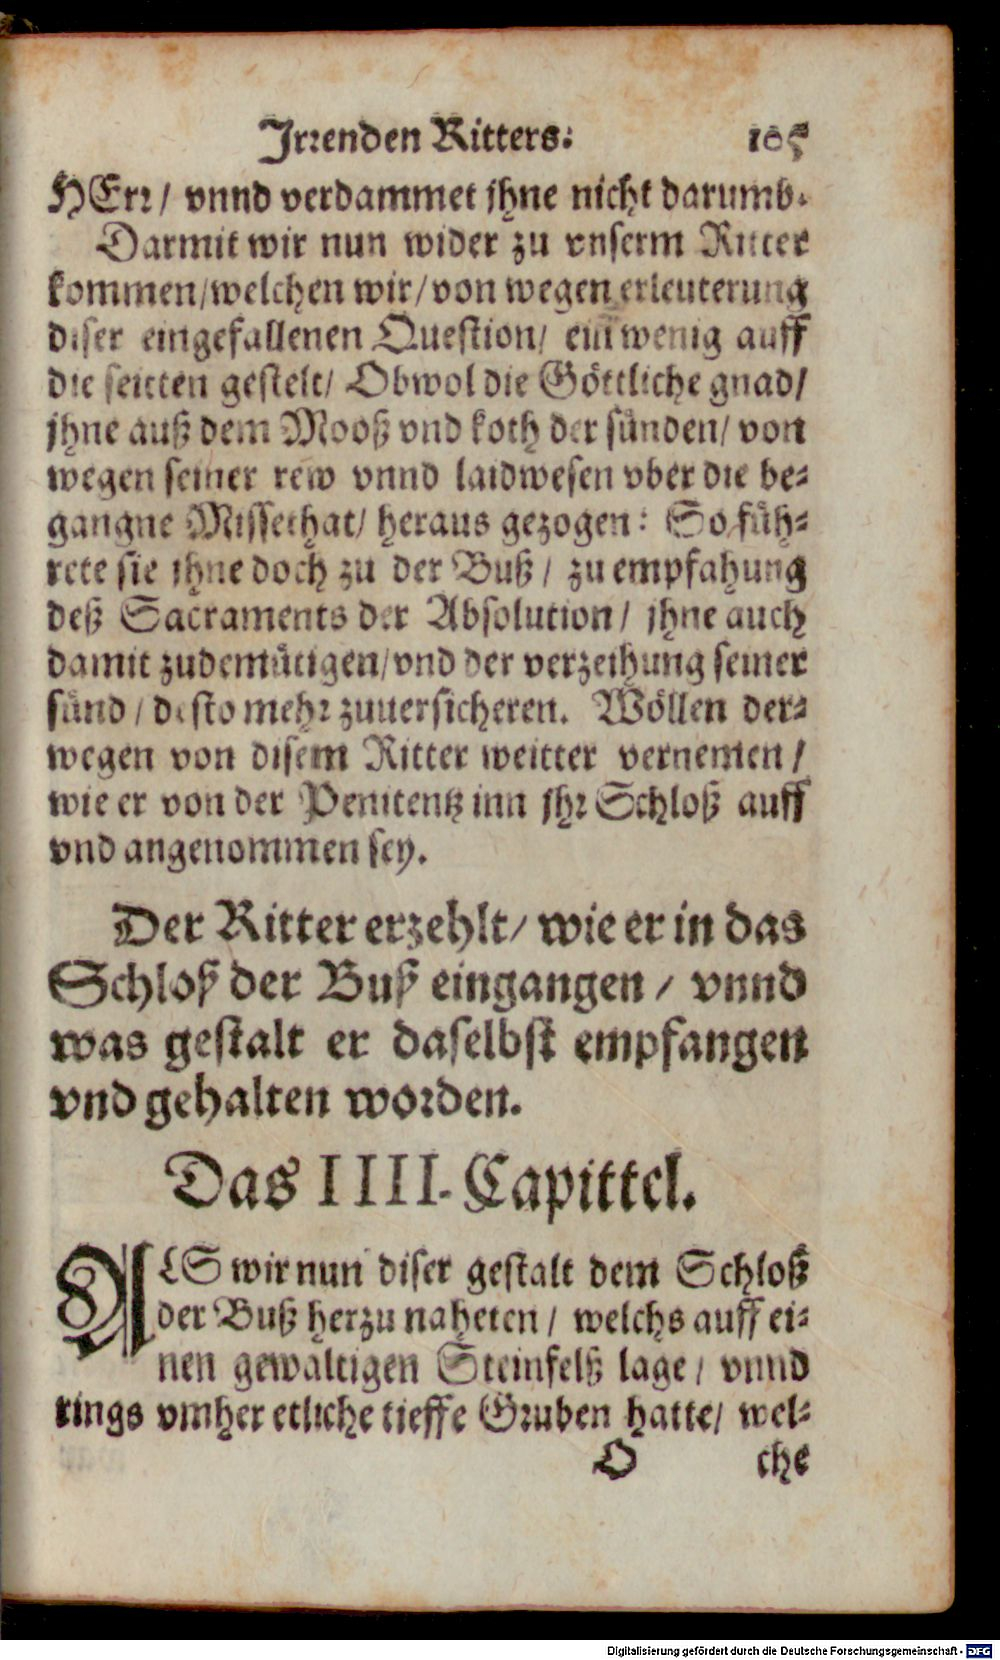 Irrenden Ritters. 105
HErr/ vnnd verdammet jhne nicht darumb.
Darmit wir nun wider zu vnserm Ritter
kommen/welchen wir/von wegen erleuterung
diser eingefallenen Question/ ein wenig auff
die seitten gestelt/ Obwol die Göttliche gnad/
jhne auß dem Mooß vnd koth der sünden/ von
wegen seiner rew vnnd laidwesen vber die be-
gangne Missethat/ heraus gezogen: So füh-
rete sie jhne doch zu der Buß/ zu empfahung
deß Sacraments der Absolution/ jhne auch
damit zudemütigen/vnd der verzeihung seiner
sünd/ desto mehr zuuersicheren. Wöllen der-
wegen von disem Ritter weitter vernemen/
wie er von der Penitentz inn jhr Schloß auff
vnd angenommen sey.
Der Ritter erzehlt/ wie er in das
Schloß der Buß eingangen/ vnnd
was gestalt er daselbst empfangen
vnd gehalten worden.
Das IIII. Capittel.
ALS wir nun diser gestalt dem Schloß
der Buß herzu naheten/ welchs auff ei-
nen gewaltigen Steinfelß lage/ vnnd
rings vmher etliche tieffe Gruben hatte/ wel-
O che
Digitalisierung gefördert durch die Deutsche Forschungsgemeinschaft - DFG